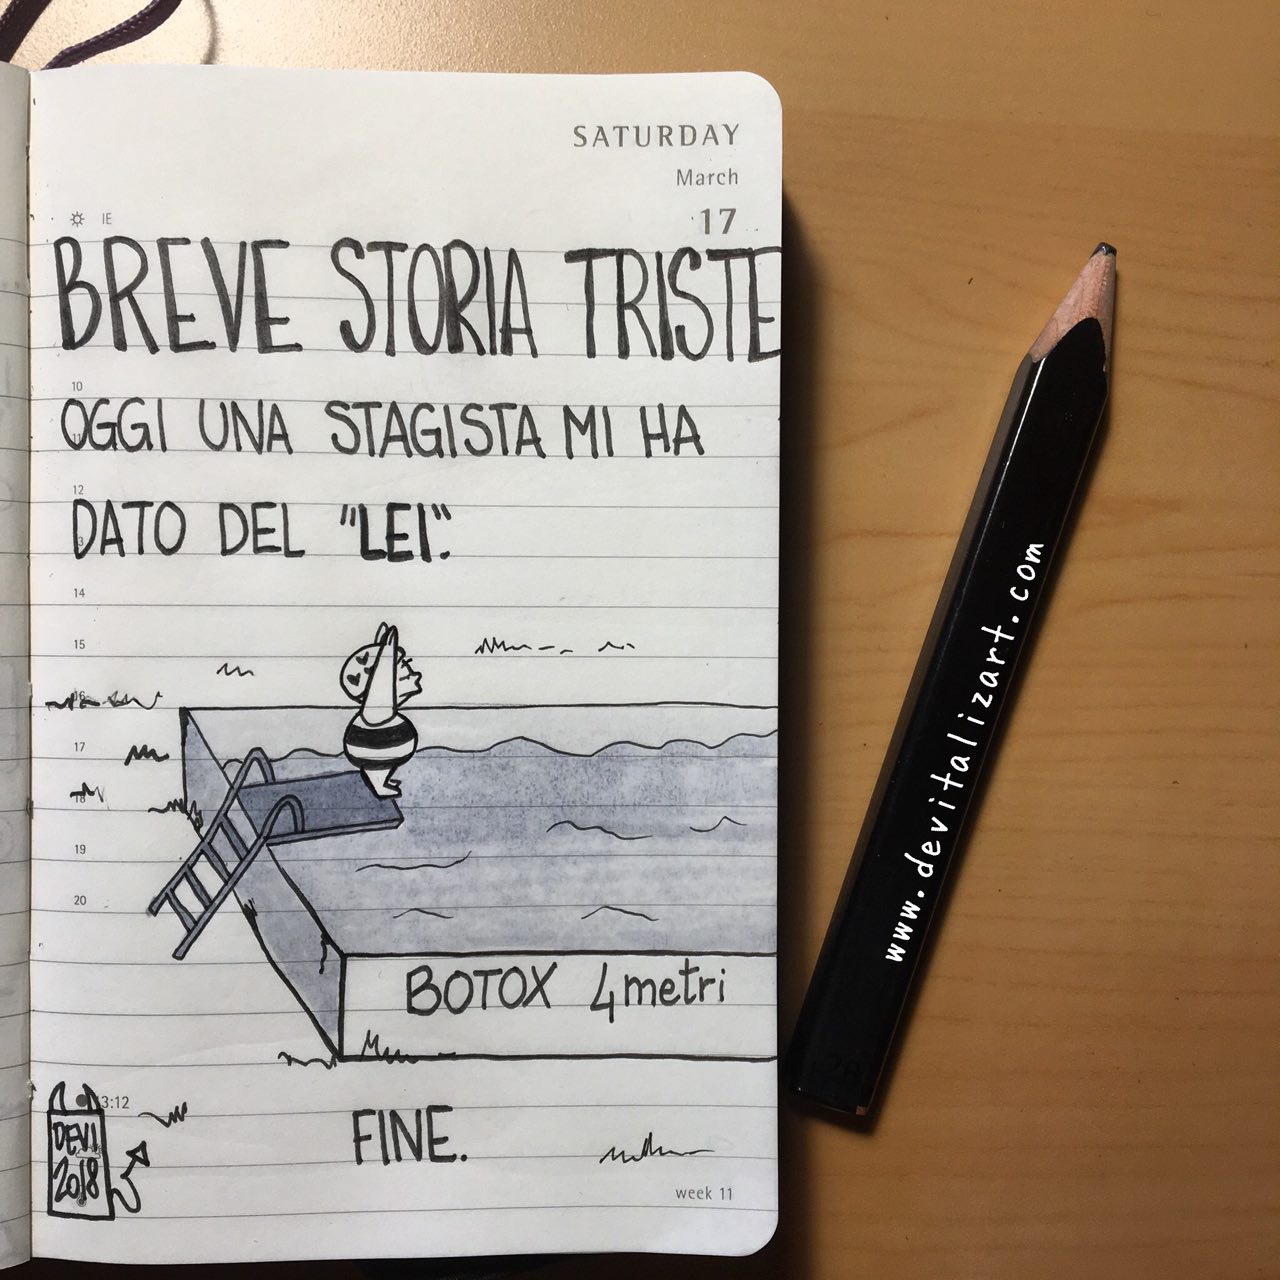 SATURDAY
March
17
IE
BREVE STORIA TRISTE
10
OGGI UNA STAGISTA MI HA
12
DATO DEL "LEI".
14
15
16
17
18
19
20
BOTOX 4metri
13:12
FINE.
DEVI
2018
week 11
www.devitalizart.com